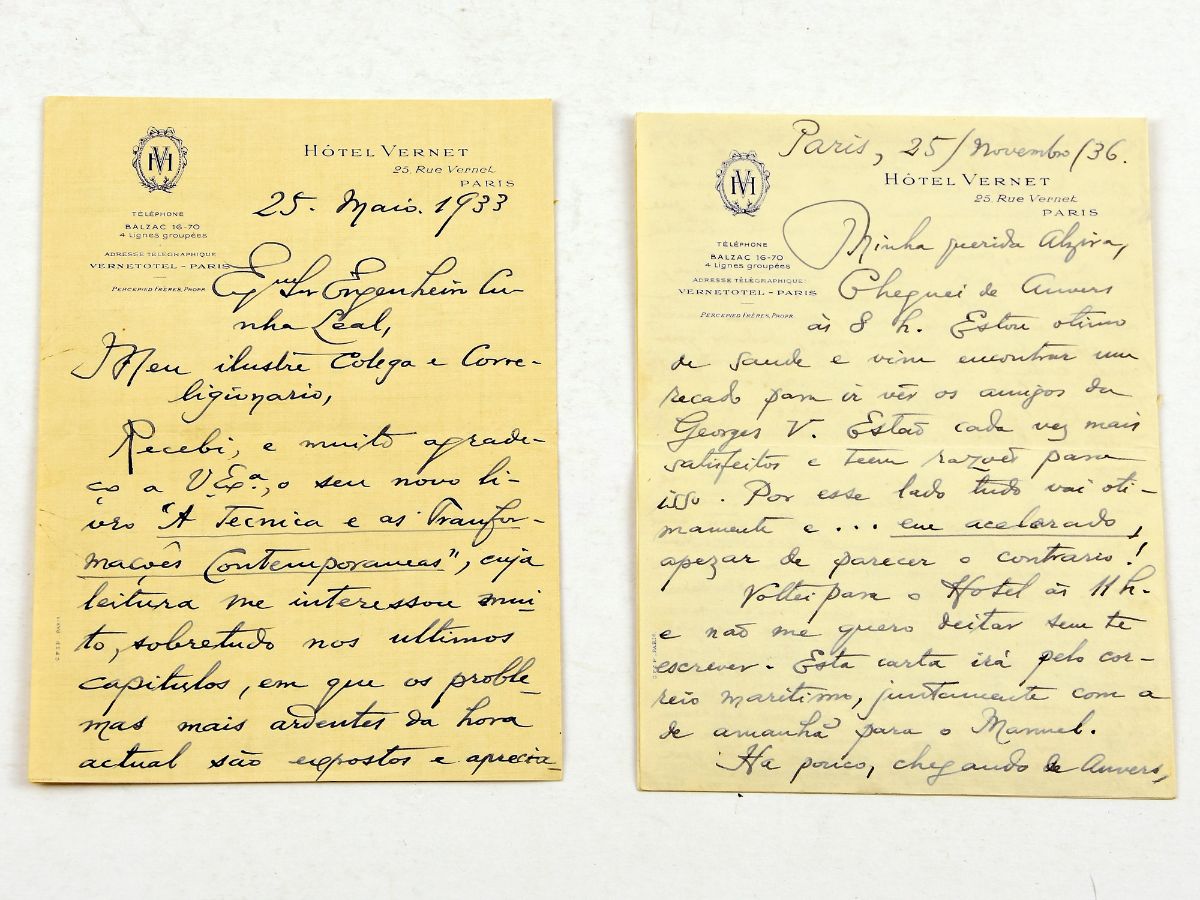 HÔTEL VERNET
25, Rue Vernet
PARIS
25. Maio. 1933
TÉLÉPHONE
BALZAC 16-70
4 Lignes groupées
ADRESSE TÉLÉGRAPHIQUE
VERNETOTEL - PARIS
PERCEPIED FRÈRES, PROPR.
Engenheiro Cu-
nha Leal,
Meu ilustre Colega e Corre-
ligionario,
Recebi, e muito agrade-
ço a V. Exª., o seu novo li-
vro "A Tecnica e as Transfor-
mações Contemporaneas", cuja
leitura me interessou mui
to, sobretudo nos ultimos
capitulos, em que os proble-
mas mais ardentes da hora
actual são expostos e aprecia-
Paris, 25/Novembro/36.
HÔTEL VERNET
25, Rue Vernet
PARIS
TÉLÉPHONE
BALZAC 16-70
4 Lignes groupées
ADRESSE TÉLÉGRAPHIQUE:
VERNETOTEL - PARIS
PERCEPIED FRÈRES, PROPR.
Minha querida Alzira,
Cheguei de Anvers
às 8 h. Estou otimo
de saude e vim encontrar um
recado para ir vêr os amigos da
Georges V. Estão cada vez mais
satisfeitos e teem razões para
isso. Por esse lado tudo vai oti-
mamente e... em acelarado,
apezar de parecer o contrario!
Voltei para o Hotel às 11 h.
e não me quero deitar sem te
escrever. Esta carta irá pelo cor-
reio maritimo, juntamente com a
de amanhã para o Manuel.
Ha pouco, chegando de Anvers,